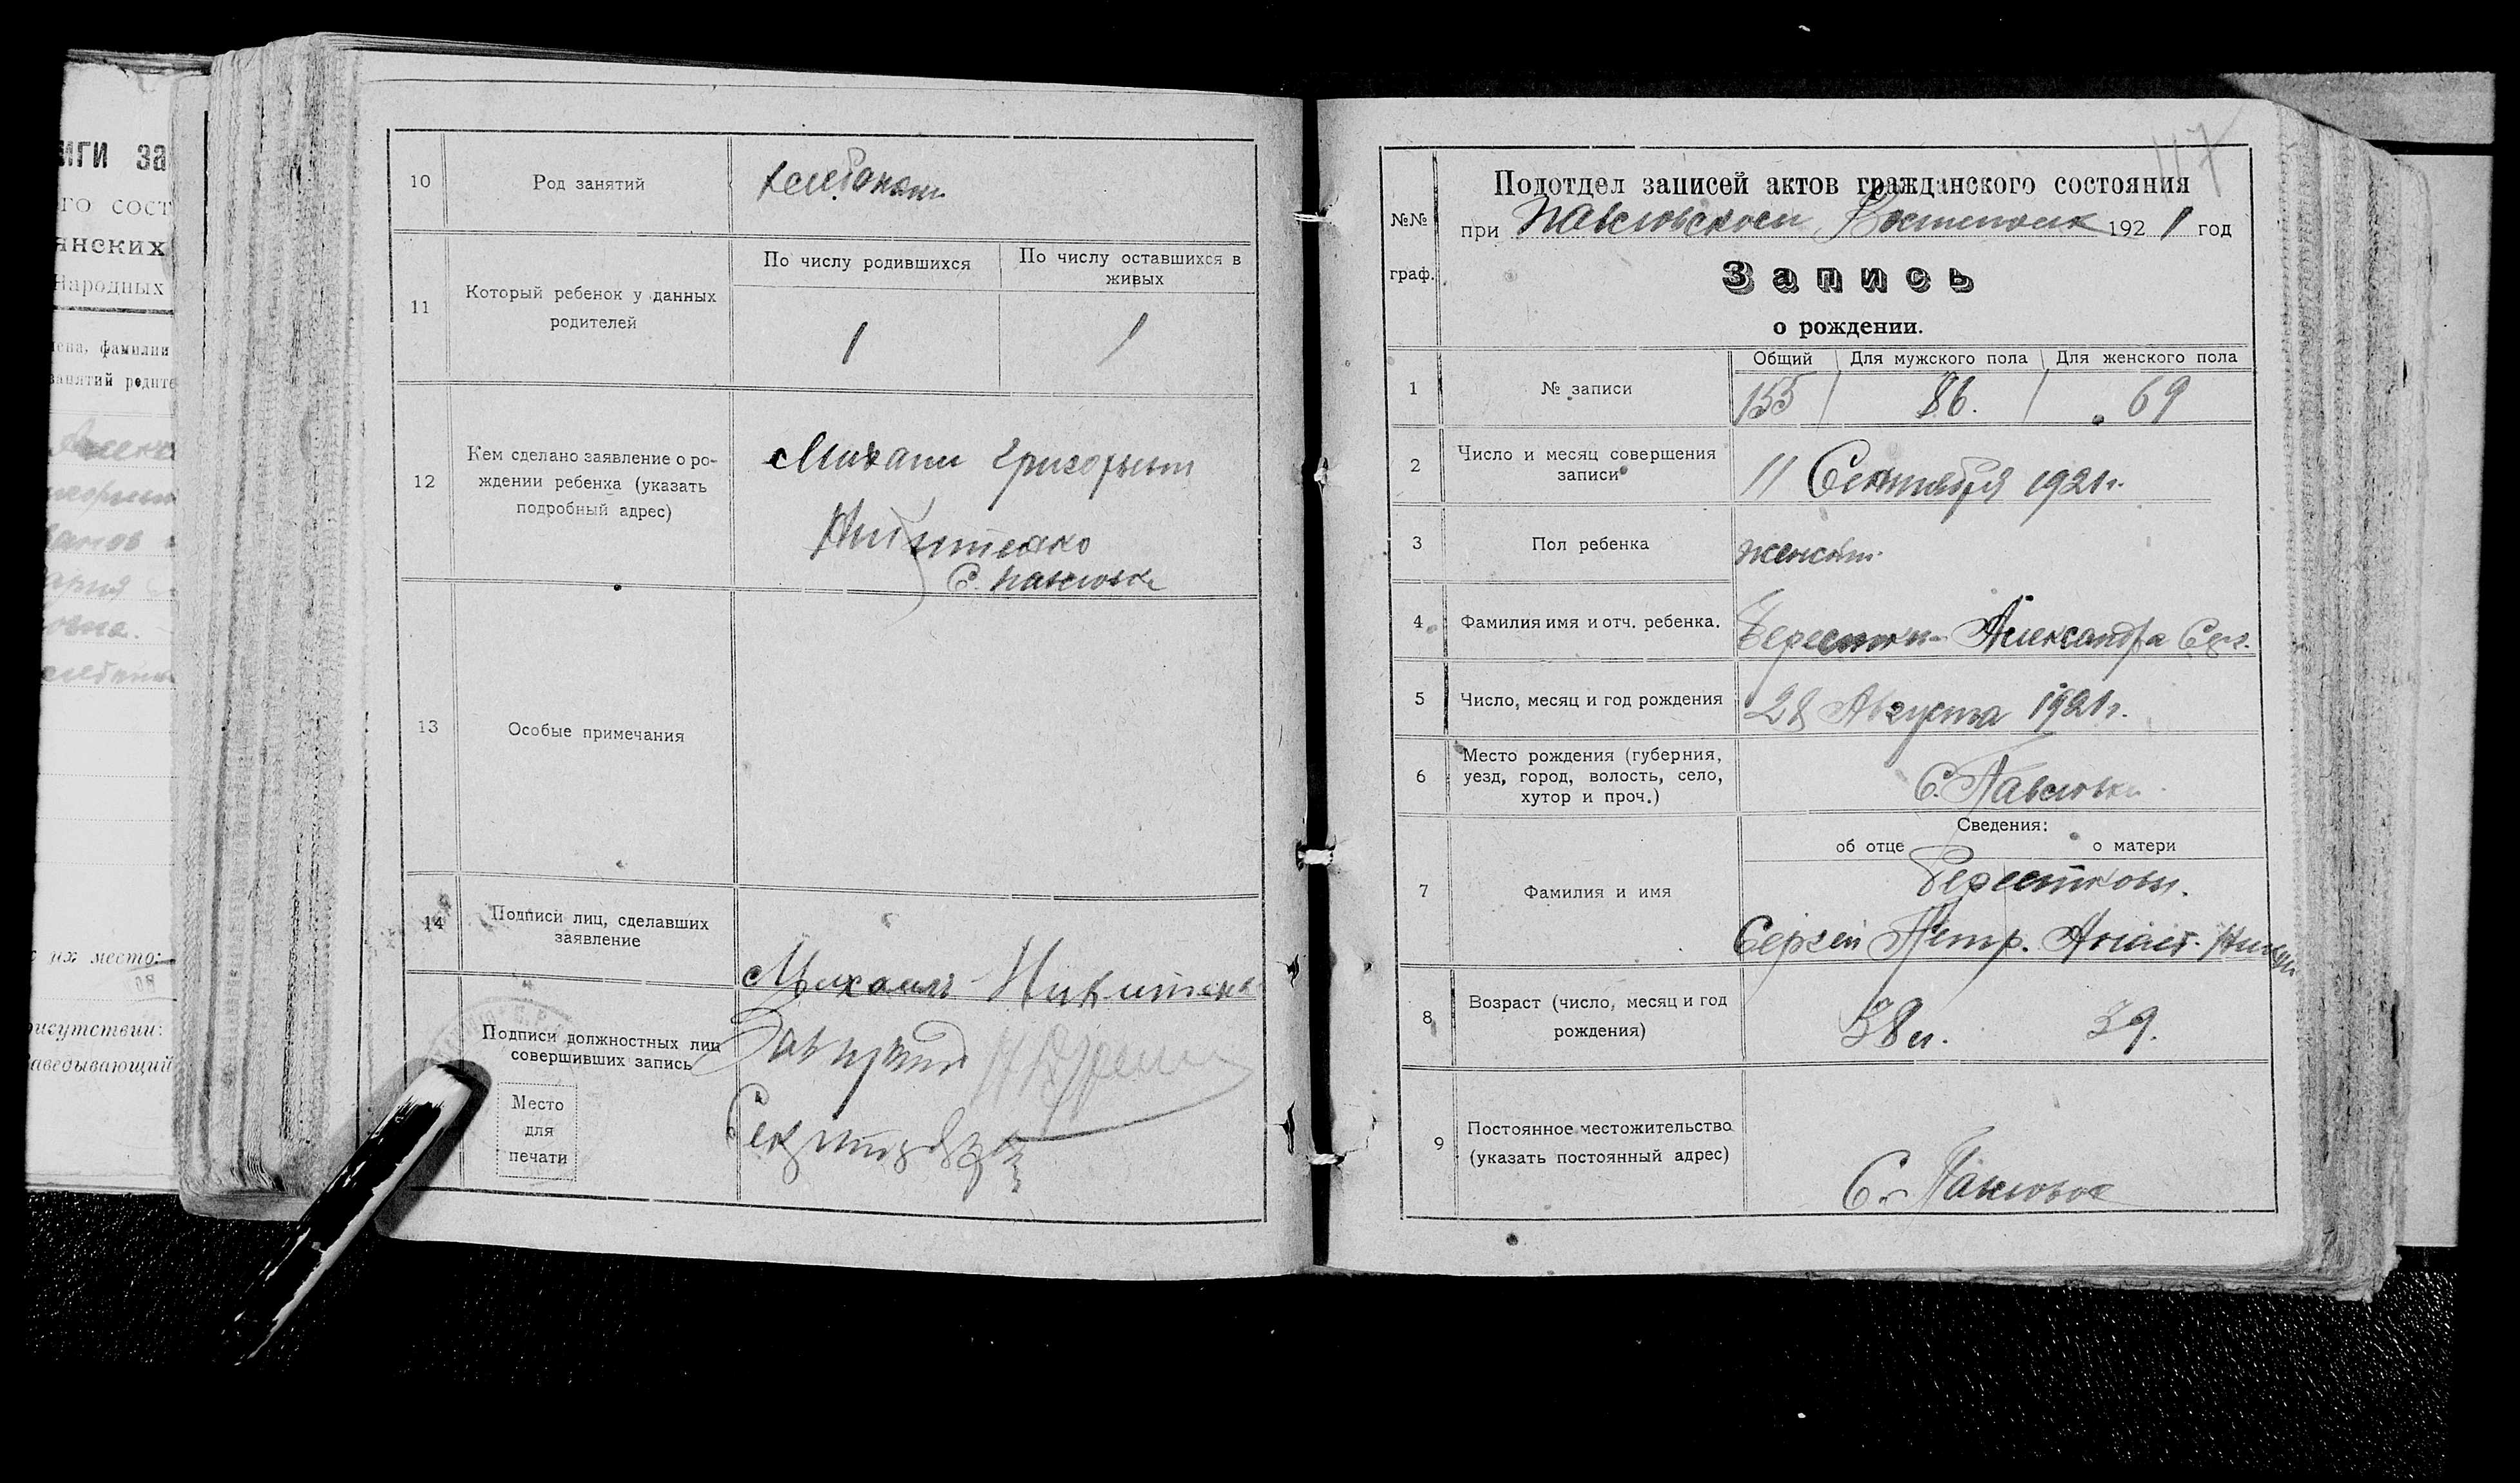 иги за
го сост
янских
Народных
мена, фамилии
занятий родите
их место:
рисутствии:
аведывающий
10 Род занятий хлебопаш.
11 Который ребенок у данных родителей
По числу родившихся
По числу оставшихся в живых
1 1
12 Кем сделано заявление о ро-
ждении ребенка (указать
подробный адрес)
Михаил Григорьев
Никитенко
С. Павловка
13 Особые примечания
14 Подписи лиц, сделавших
заявление
Михаилъ Никитенко
Подписи должностных лиц
совершивших запись
Место
для
печати
117
№№
граф.
Подотдел записей актов гражданского состояния
при Павловском 1921 год
Запись
о рождении.
Общий Для мужского пола Для женского пола
1 № записи 155 86. 69
2 Число и месяц совершения
записи
11 Сентября 1921г.
3 Пол ребенка женский.
4 Фамилия имя и отч. ребенка. Александра Серг.
5 Число, месяц и год рождения 28 Августа 1921г.
6 Место рождения (губерния,
уезд, город, волость, село,
хутор и проч.)
С. Павловка
Сведения:
об отце о матери
7 Фамилия и имя
Сергей Петр.
8 Возраст (число, месяц и год
рождения)
38 л. 39.
9 Постоянное местожительство
(указать постоянный адрес)
С. Павловка